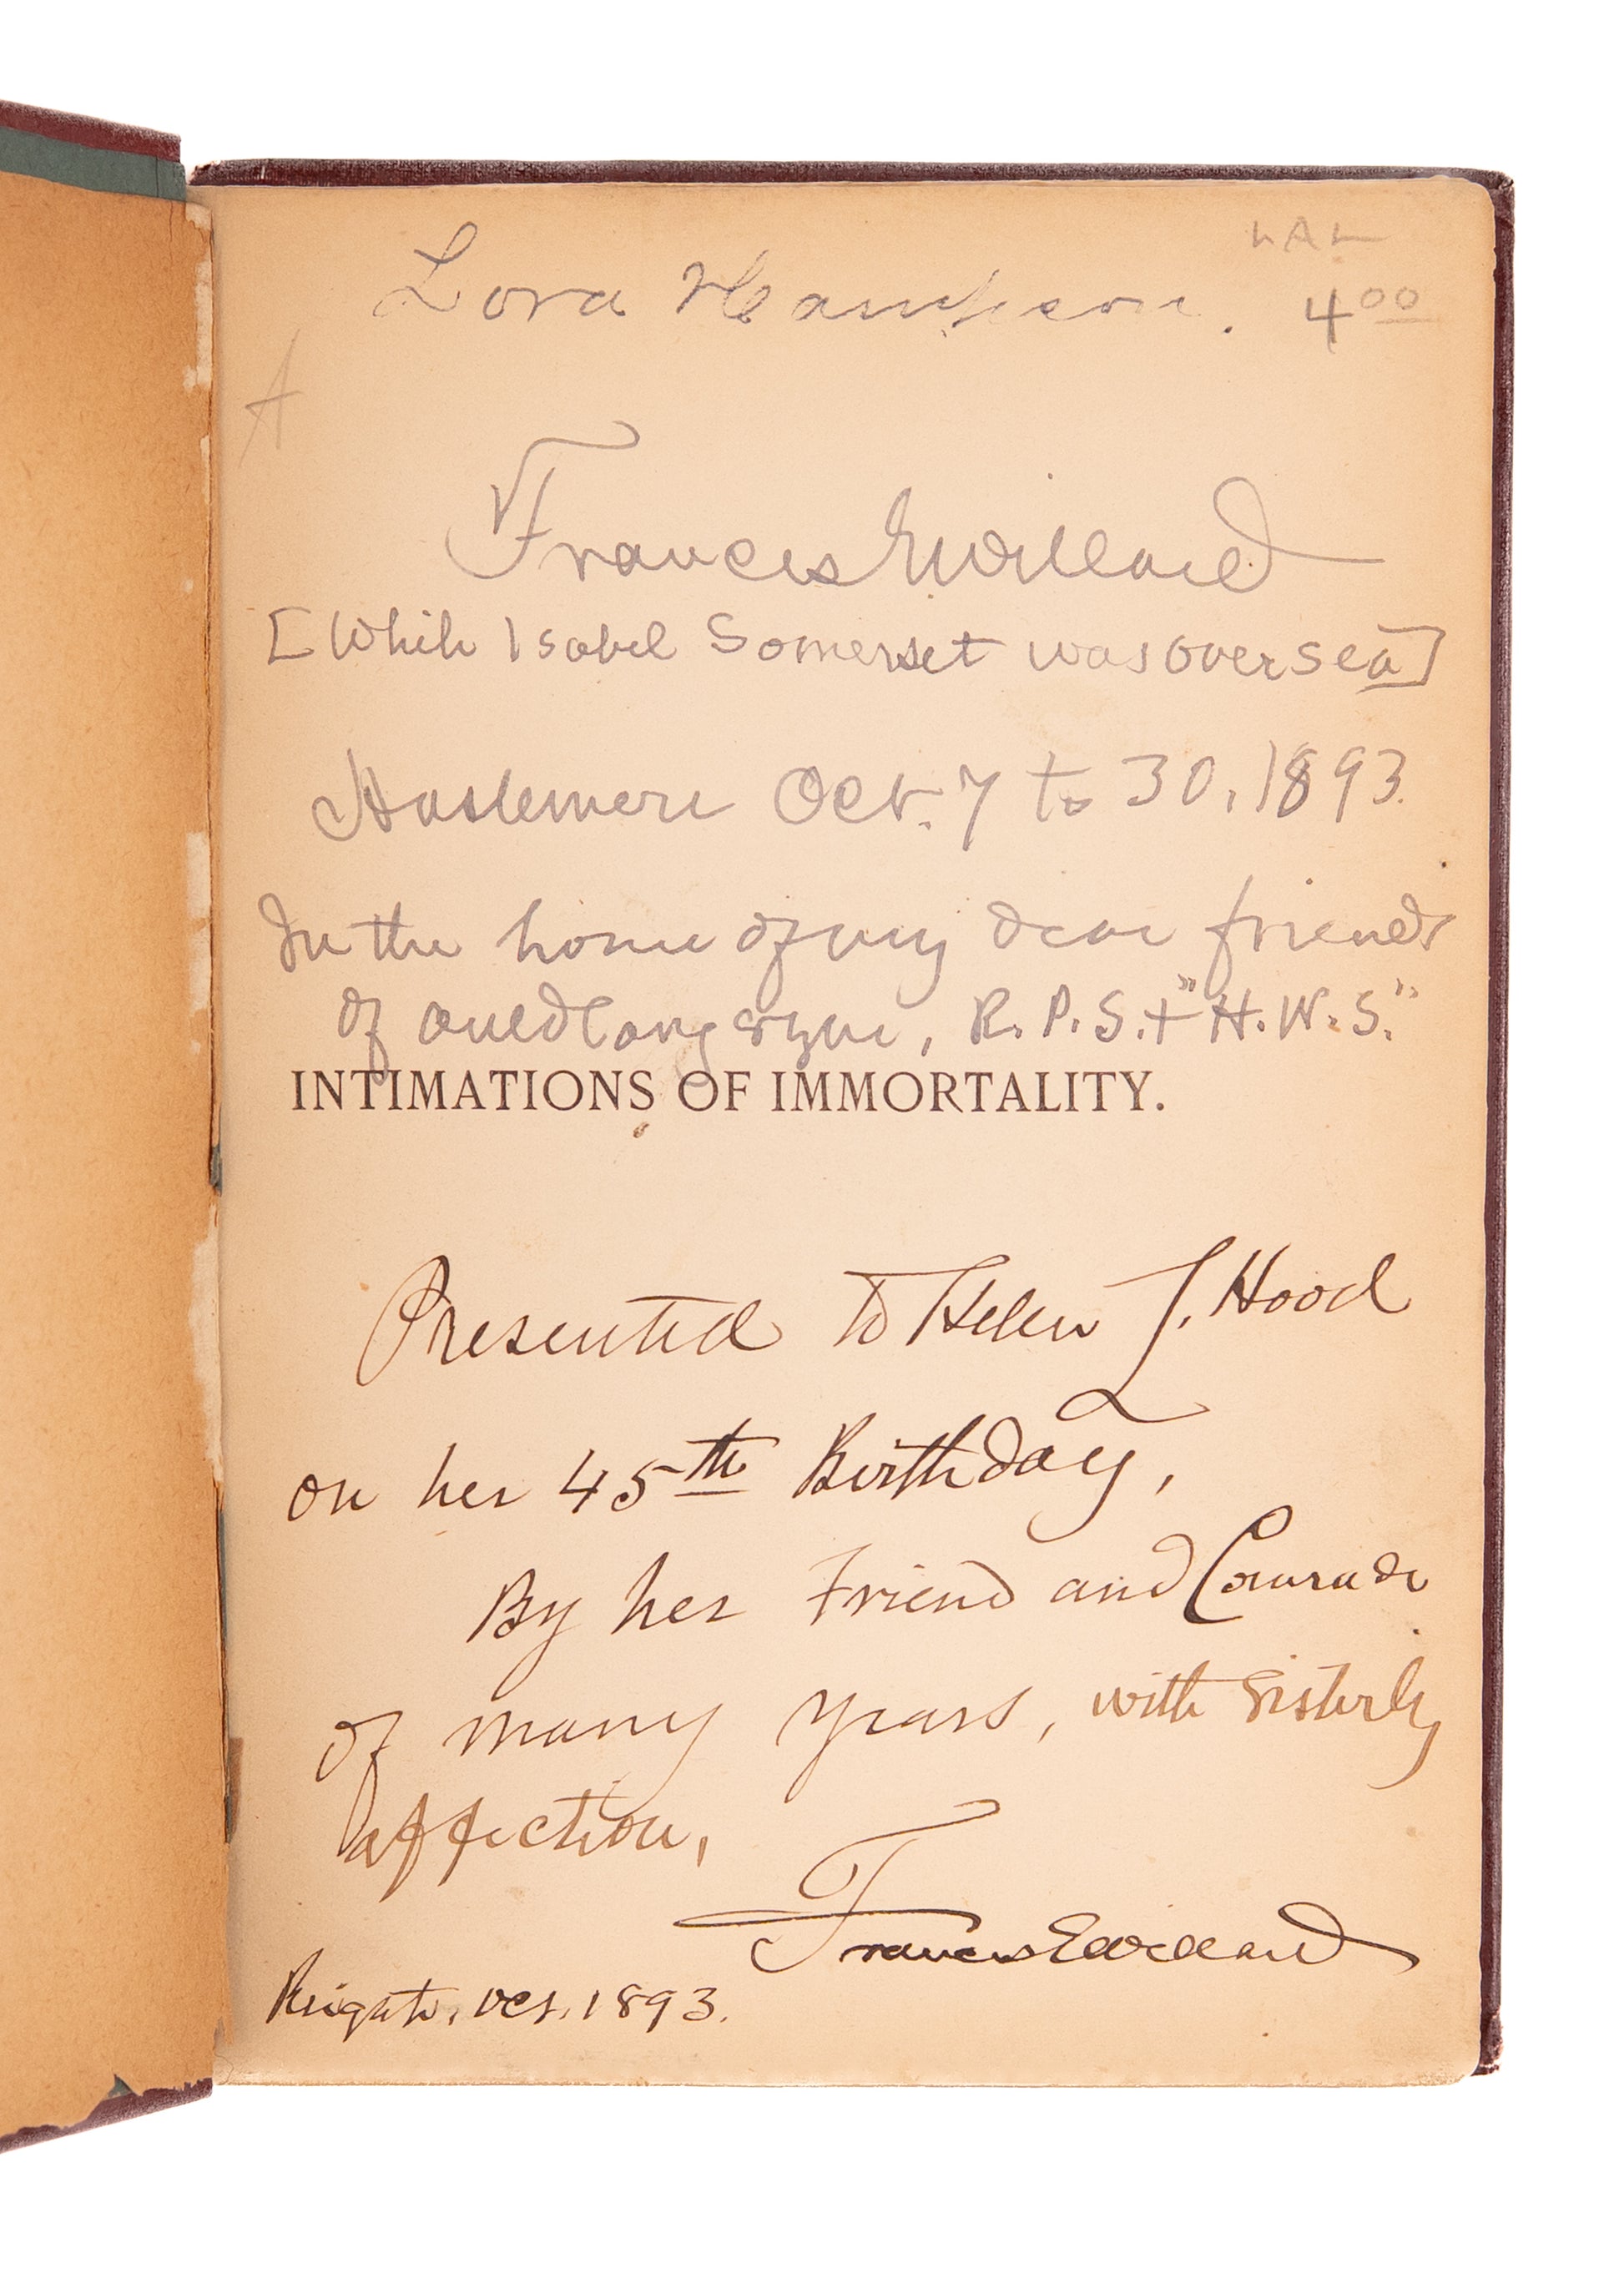 LAL
Lora Harrison. 4 00
A
Frances E Willard
[While Isabel Somerset was over sea]
Haslemere Oct. 7 to 30, 1893.
In the home of my dear friends
of auld lang syne, R. P. S. + "H. W. S."
INTIMATIONS OF IMMORTALITY.
Presented to Helen L. Hood
on her 45th Birthday,
By her Friend and Comrade
of many years, with sisterly
affection,
Frances E Willard
Reigate, Oct. 1893.